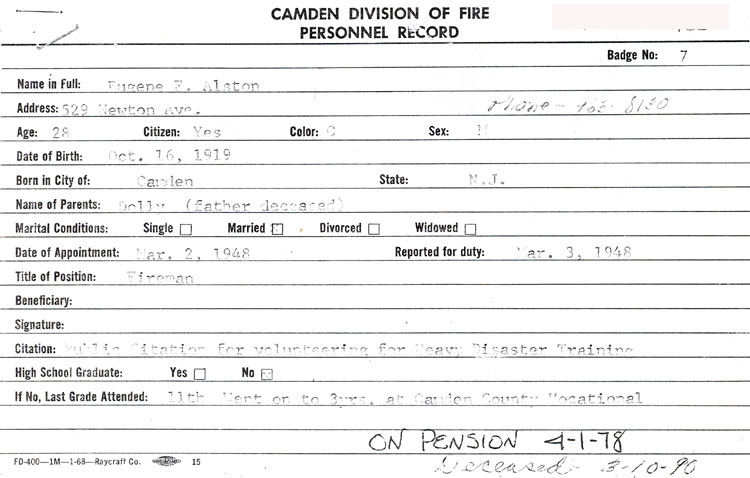 CAMDEN DIVISION OF FIRE
PERSONNEL RECORD
Badge No: 7
Name in Full: Eugene E. Alston
Address: 529 Newton Ave. Phone - 8130
Age: 28 Citizen: Yes Color: C Sex: M
Date of Birth: Oct. 16, 1919
Born in City of: Camden State: N.J.
Name of Parents: Dolly (father deceased)
Marital Conditions: Single Married Divorced Widowed
Date of Appointment: Mar. 2, 1948 Reported for duty: Mar. 3, 1948
Title of Position: Fireman
Beneficiary:
Signature:
Citation: Public Citation for volunteering for Heavy Disaster Training
High School Graduate: Yes No
If No, Last Grade Attended: 11th Went on to 3yrs. at Camden County Vocational
ON PENSION 4-1-78
FD-400—1M—1-68—Raycraft Co. 15 Deceased - 3-10-90